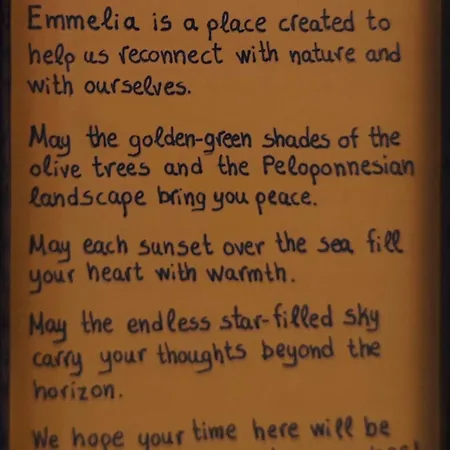 Emmelia is a place created to
help us reconnect with nature and
with ourselves.
May the golden-green shades of the
olive trees and the Peloponnesian
landscape bring you peace.
May each sunset over the sea fill
your heart with warmth.
May the endless star-filled sky
carry your thoughts beyond the
horizon.
We hope your time here will be